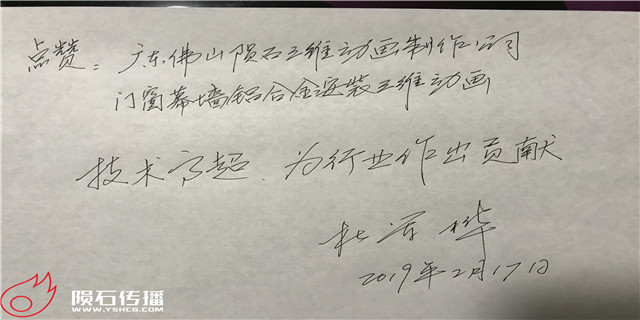 点赞：广东佛山陨石三维动画制作公司
门窗幕墙铝合金安装三维动画
技术高超、为行业作出贡献
杜
2019年2月17日
陨石传播
www.YSHCG.COM